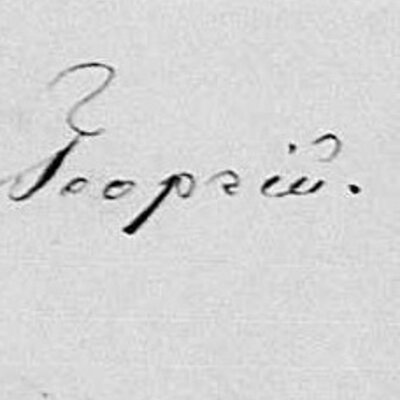 Георгій.